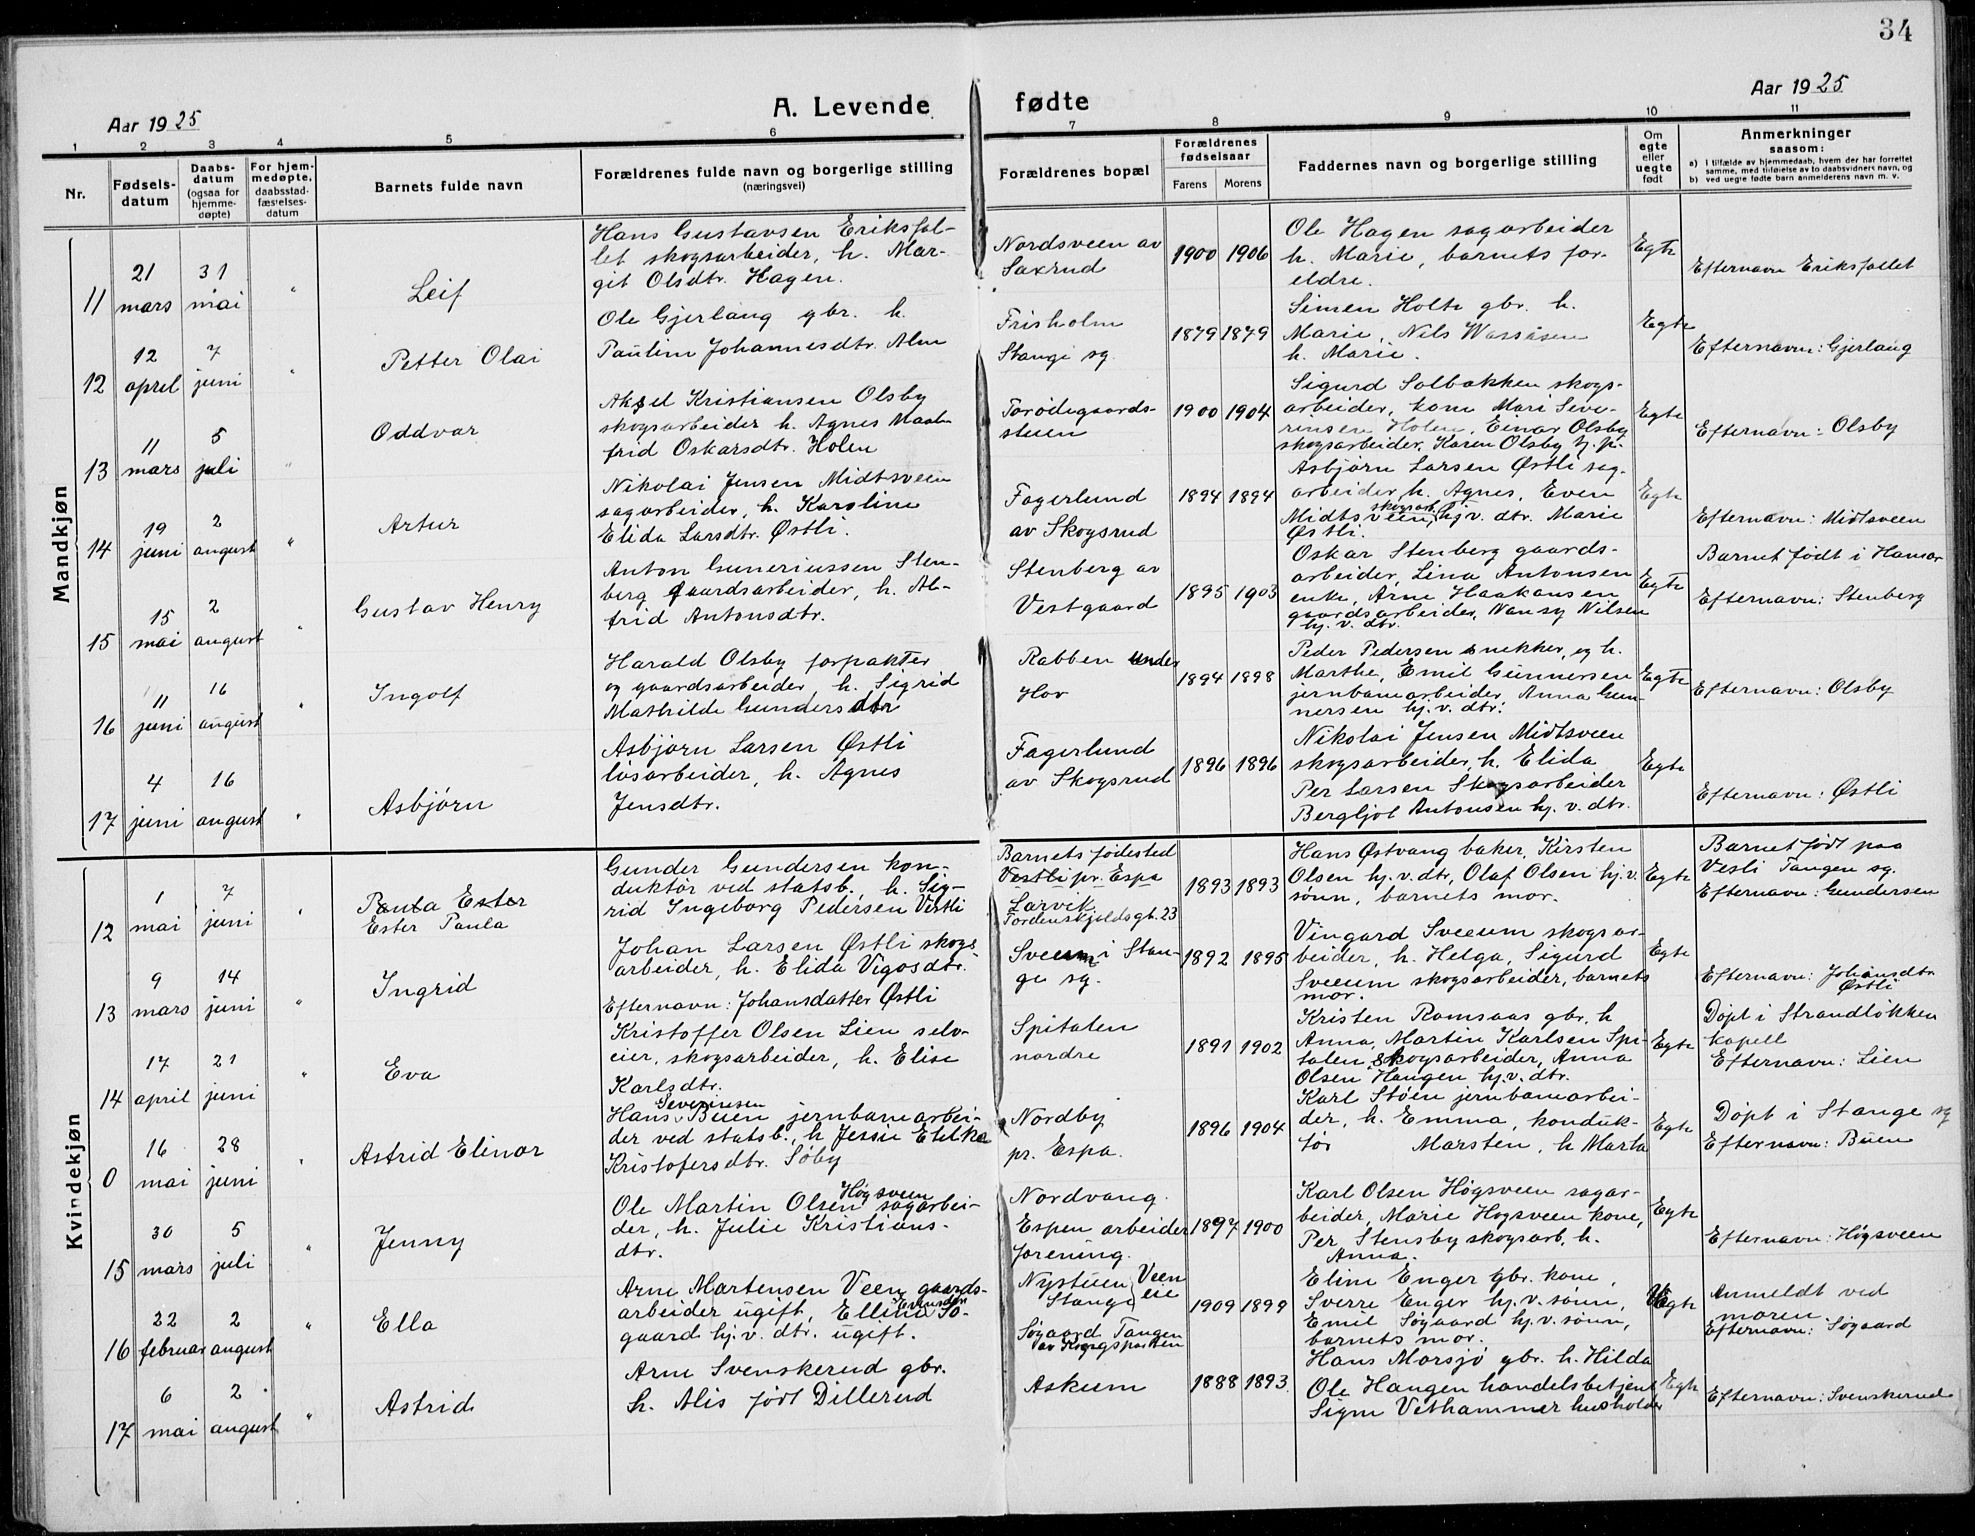 34
Aar 1925
A. Levende fødte
Aar 1925
1 2 3 4 5 6 7 8 9 10 11
Nr.
Fødsels-
datum
Daabs-
datum
(ogsaa for
hjemme-
døpte)
For hjem-
medøpte,
daabsstad-
fæstelses-
datum
Barnets fulde navn
Forældrenes fulde navn og borgerlige stilling
(næringsvei)
Forældrenes bopæl
Forældrenes
fødselsaar
Farens Morens
Faddernes navn og borgerlige stilling
Om
egte
eller
uegte
født
Anmerkninger
saasom:
a) I tilfælde av hjemmedaab, hvem der har forrettet
samme, med tilføielse av to daabsvidners navn, og
b) ved uegte fødte barn anmelderens navn m. v.
Mandkjøn
11
21
mars
31
mai
"
Leif
Hans Gustavsen Eriksfal-
let skogsarbeider, h. Mar-
git Olsdtr. Hagen.
Nordsveen av
Saxrud
1900 1906
Ole Hagen sagarbeider
h. Marie, barnets for-
eldre.
Egte
Efternavn Eriksfallet
12
12
april
7
juni
"
Petter Olai
Ole Gjerlaug gbr. h.
Pauline Johannesdtr. Alm
Frisholm
Stange sg.
1879 1879
Simen Holte gbr. h.
Marie, Nils
h. Marie.
Egte
Efternavn: Gjerlaug
13
11
mars
5
juli
"
Oddvar
Aksel Kristiansen Olsby
skogsarbeider h. Agnes Maal-
frid Oskarsdtr. Holen
Torødegaards-
stuen
1900 1904
Sigurd Solbakken skogs-
arbeider, kone Mari Seve-
rinsen Holen, Einar Olsby
skogsarbeider, Karen Olsby hj. p.
Egte
Efternavn: Olsby
14
19
juni
2
august
"
Artur
Nikolai Jensen Midtsveen
sagarbeider, h. Karoline
Elida Larsdtr. Østli.
Fagerlund
av Skogsrud
1894 1894
Asbjørn Larsen Østli sag-
arbeider, h. Agnes, Even
Midtsveen, skogsarb. hj. v. dtr. Marie
Østli.
Egte
Efternavn: Midtsveen
15
15
mai
2
august
"
Gustav Henry
Anton Guneriussen Sten-
berg gaardsarbeider, h. Al-
frid Antonsdtr.
Stenberg av
Vestgaard
1895 1903
Oskar Stenberg gaards-
arbeider, Lina Antonsen
enke, Arne Haakonsen
gaardsarbeider, Nansy Nilsen
hj. v. dtr.
Egte
Barnet født i Hamar
Efternavn: Stenberg
16
11
juni
16
august
"
Ingolf
Harald Olsby forpakter
og gaardsarbeider, h. Sigrid
Mathilde Gundersdtr
Rabben under
Hov
1894 1898
Peder Pedersen snekker, og h.
Marthe, Emil Gunnersen
jernbanearbeider, Anna Gun-
nersen hj. v. dtr.
Egte
Efternavn: Olsby
17
4
juni
16
august
"
Asbjørn
Asbjørn Larsen Østli
løsarbeider, h. Agnes
Jensdtr.
Fagerlund
av Skogsrud
1896 1896
Nikolai Jensen Midtsveen
skogsarbeider, h. Elida
Per Larsen Skogsarbeider
Bergljot Antonsen hj. v. dtr.
Egte
Efternavn: Østli
Kvindekjøn
12
1
mai
7
juni
"
Paula Ester
Ester Paula
Gunder Gundersen kon-
duktør ved statsb. h. Sig-
rid Ingeborg Pedersen Vestli
Barnets fødested
Vestli pr. Espa
Larvik
Tordenskjoldsgt. 23
1893 1893
Hans Østvang baker, Kirsten
Olsen hj. v. dtr, Olaf Olsen hj. v.
sønn, barnets mor.
Egte
Barnet født paa
Vesli Tangen sg.
Efternavn: Gundersen
13
9
mars
14
juni
"
Ingrid
Johan Larsen Østli skogs
arbeider, h. Elida Vigosdtr.
Efternavn: Johansdatter Østli
Sveum i Stan-
ge sg.
1892 1895
Vingard Sveeum skogsar-
beider, h. Helga, Sigurd
Sveeum skogsarbeider, barnets
mor.
Egte
Efternavn: Johansdtr
Østli
14
17
april
21
juni
"
Eva
Kristoffer Olsen Lien selv-
eier, skogsarbeider, h. Elise
Karlsdtr.
Spitalen
nordre
1891 1902
Kristen Romsaas gbr, h
Anna, Martin Karlsen Spi-
talen skogsarbeider, Anna
Olsen Haugen hj. v. dtr.
Egte
Døpt i Strandløkken
kapell
Efternavn: Lien
0
16
mai
28
juni
"
Astrid Elinor
Hans Severinsen Buen jernbanearbei-
der ved statsb., h Jessie
Kristofersdtr. Søby
Nordby
pr. Espa.
1896 1904
Karl Støen jernbanearbei-
der, h. Emma, konduk-
tør Marsten, h Marta
Egte
Døpt i Stange sg
Efternavn: Buen
15
30
mars
5
juli
"
Jenny
Ole Martin Olsen Høgsveen sagarbei-
der, h. Julie Kristians-
dtr.
Nordvang.
Espen arbeider
forening.
1897 1900
Karl Olsen Høgsveen sagar-
beider, Marie Høgsveen kone,
Per Stensby skogsarb, h.
Anna.
Egte
Efternavn: Høgsveen
16
22
februar
2
august
"
Ella
Arne Martensen Veen gaards-
arbeider ugift, Elline Evensdtr Sø-
gaard hj. v. dtr. ugift.
Nystuen Veen
Stange eie
Søgaard Tangen
av Kongsparten
1909 1899
Eline Enger gbr. kone,
Sverre Enger hj. v. sønn,
Emil Søgaard hj. v. sønn,
barnets mor.
Uegte
Anmeldt ved
moren
Efternavn: Søgaard
17
6
mai
2
august
"
Astrid
Arne Svenskerud gbr.
h. Alis født Dillerud
Askum
1888 1893
Hans Morsjø gbr. h. Hilda
Ole Haugen handelsbetjent
Signe Vethammer husholder
Egte
Efternavn: Svenskerud